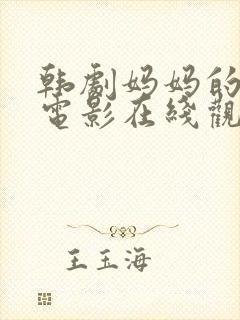 韩劇妈妈的
電影在綫觀
王玉海